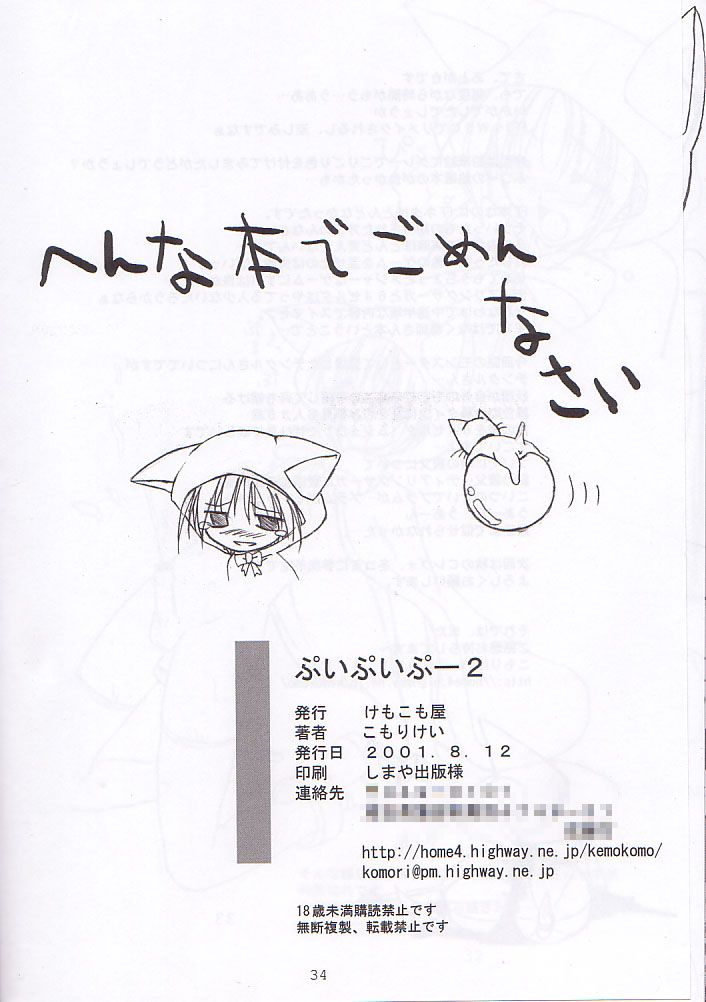 へんな本でごめん
なさい
ぷいぷいぷー2
発行 けもこも屋
著者 こもりけい
発行日 2001.8.12
印刷 しまや出版様
連絡先
http://home4.highway.ne.jp/kemokomo/
komori@pm.highway.ne.jp
18歳未満購読禁止です
無断複製、転載禁止です
34